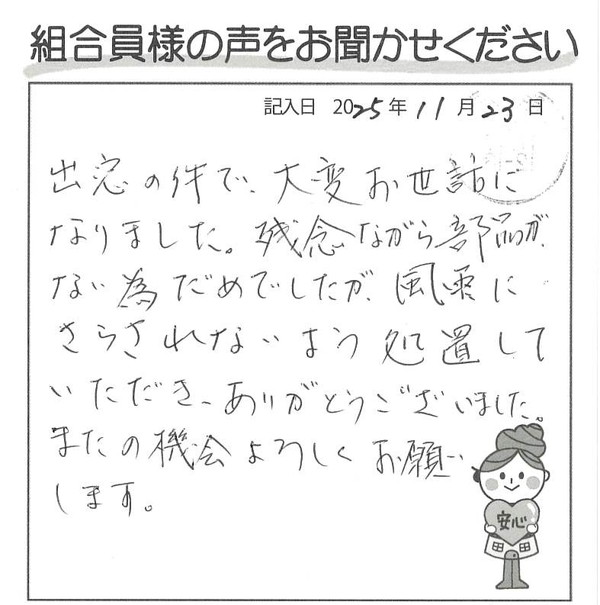 組合員様の声をお聞かせください
記入日 2025年11月23日
出窓の件で、大変お世話に
なりました。残念ながら部品が、
ない為だめでしたが、風雨に
さらされないよう処置して
いただき、ありがとうございました。
またの機会よろしくお願い
します。
安心